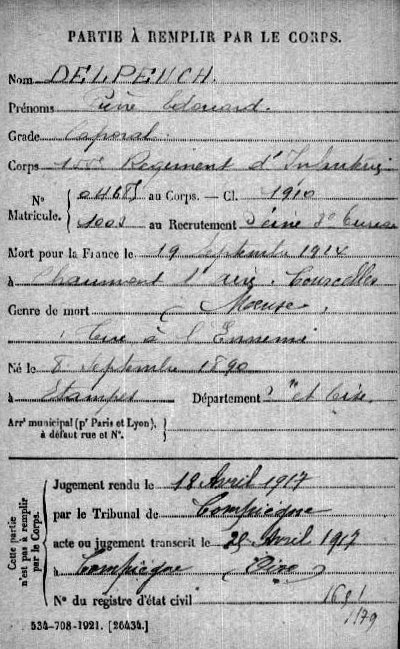 PARTIE À REMPLIR PAR LE CORPS.
Nom DELPEUCH.
Prénoms Edouard.
Grade Caporal.
Corps Regiment d'Infanterie
N° Matricule. au Corps. — Cl. 1910
1003 au Recrutement Seine
Mort pour la France le 19 Septembre 1914
à Chaumont s' Aire. Courcelles
Genre de mort ( Meuse )
Tué à l'Ennemi
Né le 8 Septembre 1890
à Etampes Département S. et Oise.
Arr^t municipal (p^r Paris et Lyon), à défaut rue et N°.
Cette partie n'est pas à remplir par le Corps.
Jugement rendu le 18 Avril 1917
par le Tribunal de Compiègne
acte ou jugement transcrit le 28 Avril 1917
à Compiègne (Oise)
N° du registre d'état civil
534-708-1921. [26434.]